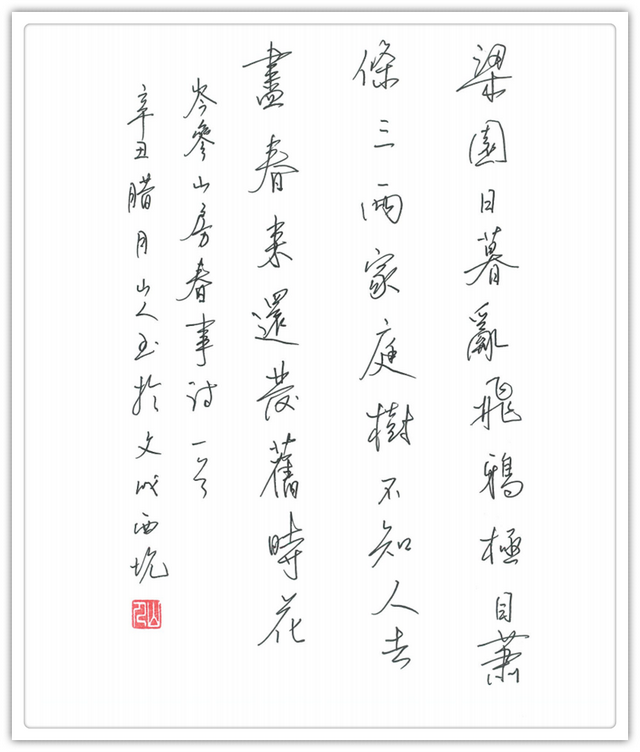 梁園日暮亂飛鴉極目蕭
條三兩家庭樹不知人去
盡春来還發舊時花
岑參山房春事詩一首
辛丑腊月山人书於文成西坑